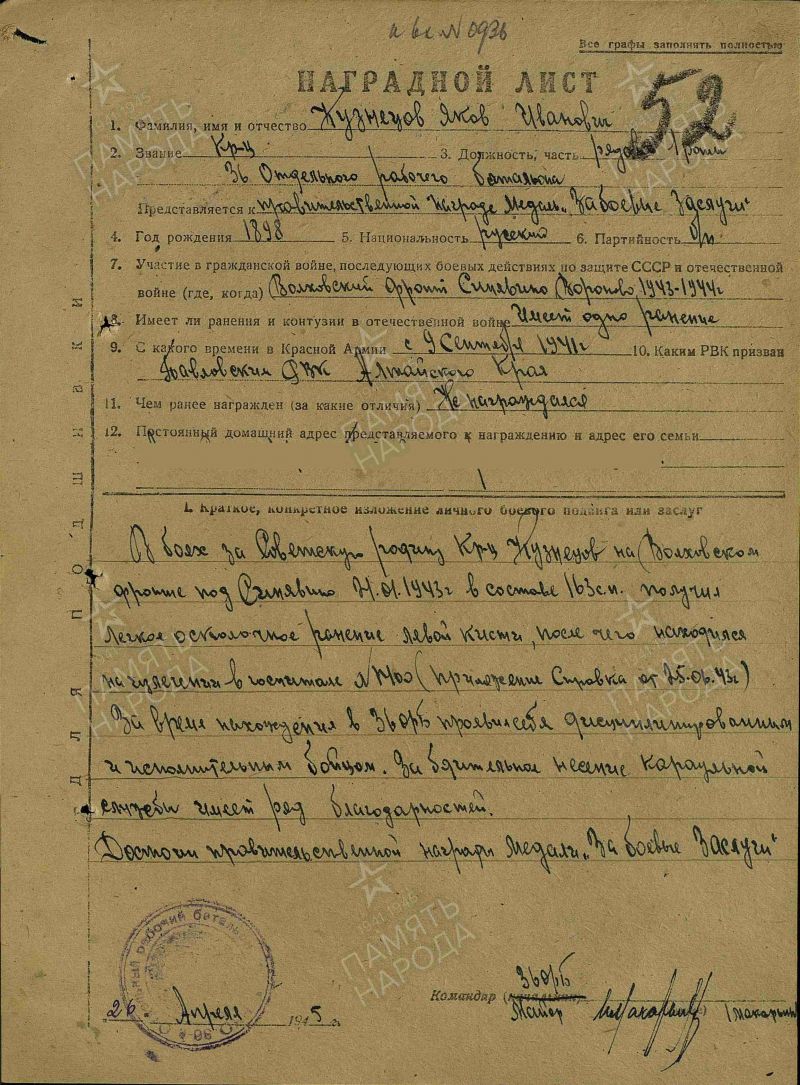 № 0936
Все графы заполнять полностью
НАГРАДНОЙ ЛИСТ
52
1. Фамилия, имя и отчество Кузнецов Яков Иванович
2. Звание Кр-ц 3. Должность, часть рядов. 1 роты
36 Отдельного рабочего батальона
Представляется к правительственной награде Медаль „За боевые Заслуги"
4. Год рождения 1898 5. Национальность русский 6. Партийность б/п
7. Участие в гражданской войне, последующих боевых действиях по защите СССР и отечественной
войне (где, когда) Волховский фронт Синявино, 1943-1944г
8. Имеет ли ранения и контузии в отечественной войне Имеет одно ранение
9. С какого времени в Красной Армии с 9 Сентября 1941г 10. Каким РВК призван
Павловский РВК Алтайского Края
11. Чем ранее награжден (за какие отличия) Не награждался
12. Постоянный домашний адрес представляемого к награждению и адрес его семьи
1. Краткое, конкретное изложение личного боевого подвига или заслуг
В боях за Советскую родину Кр-ц Кузнецов на Волховском
фронте под Синявино 21.01.1943г в составе 163 с.п. получил
легкое осколочное ранение левой кисти, после чего находился
на излечении в госпитале № (приложение Справка от 25.06.43г)
За время нахождения в 36 ОРБ проявил себя дисциплинированным
и исполнительным бойцом. За бдительное несение караульной
службы имеет ряд благодарностей.
Достоин правительственной награды Медали „За боевые Заслуги"
36 ОРБ
Командир (начальник)
26 Апреля 1945 г. Майор (Макарьин)
рабочий батальон
ДЛЯ ПОДШИВКИ
ПАМЯТЬ НАРОДА